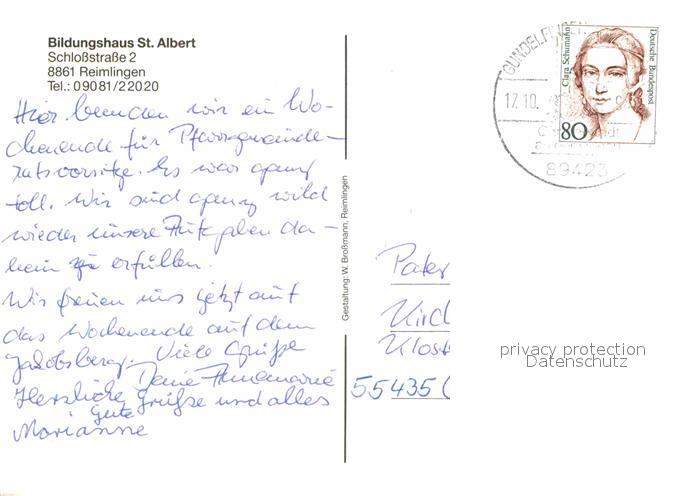 Bildungshaus St. Albert
Schloßstraße 2
8861 Reimlingen
Tel.: 09081/22020
Hier beenden wir ein Wo-
chenende für Pfarrgemeinde-
ratsvorsitze. Es war ganz
toll. Wir sind ganz wild
wieder unsere Aufgaben da-
heim zu erfüllen.
Wir freuen uns jetzt auf
das Wochenende auf dem
Jakobsberg. Viele Grüße
Deine Annemarie
Herzliche Grüße und alles
Gute
Marianne
Gestaltung: W. Broßmann, Reimlingen
GUNDELFINGEN
17.10.
89423
Clara Schumann
Deutsche Bundespost
80
Pater
Kirch
Klost
55435
privacy protection
Datenschutz